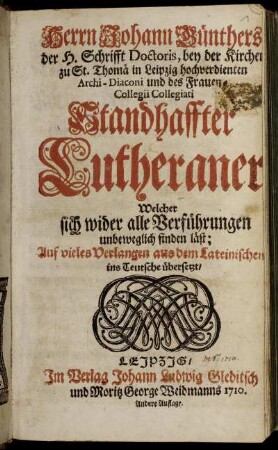 Herrn Johann Günthers
der H. Schrifft Doctoris, bey der Kirchen
zu St. Thomä in Leipzig hochverdienten
Archi-Diaconi und des Frauen-
Collegii Collegiati
Standhaffter
Lutheraner
Welcher
sich wider alle Verführungen
unbeweglich finden läst;
Auf vieles Verlangen aus dem Lateinischen
ins Teutsche übersetzt/
LEIPZIG/
Im Verlag Johann Ludwig Gleditsch
und Moritz George Weidmanns 1710.
Andere Auflage.